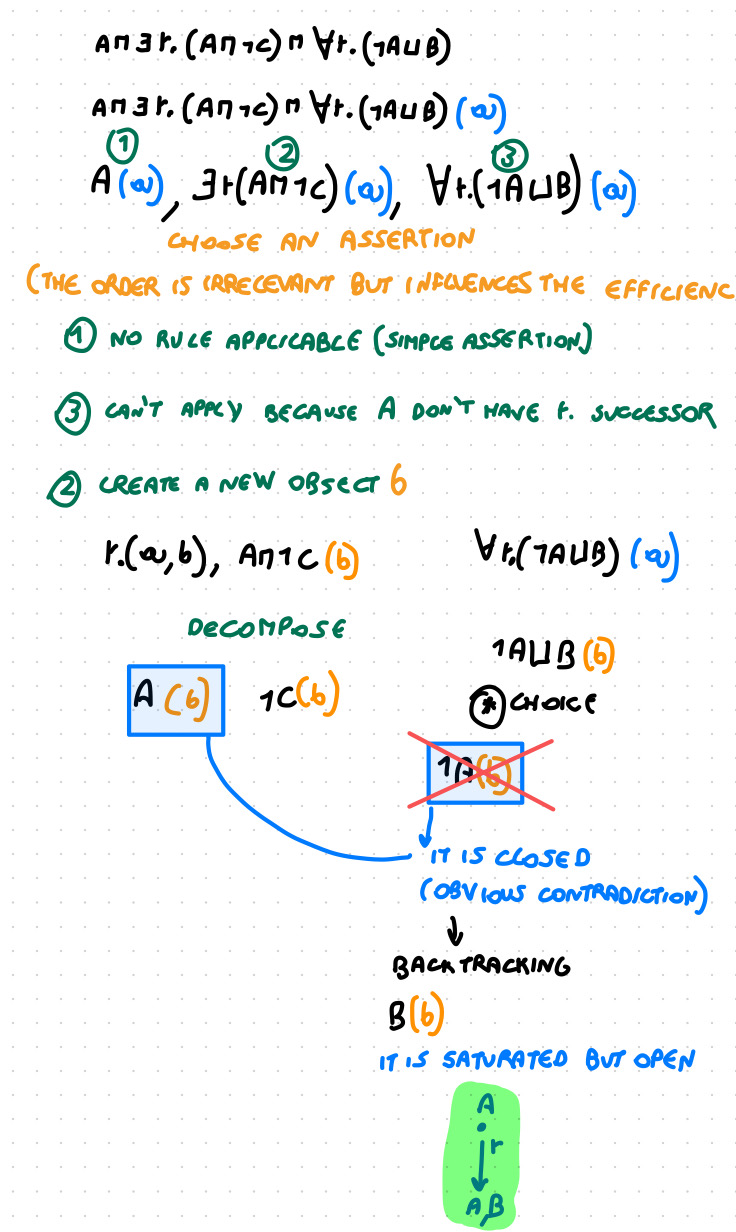 A⊓∃r.(A⊓¬C)⊓∀r.(¬A⊔B)
A⊓∃r.(A⊓¬C)⊓∀r.(¬A⊔B)(a)
① ② ③
A(a), ∃r(A⊓¬C)(a), ∀r.(¬A⊔B)(a)
CHOOSE AN ASSERTION
(THE ORDER IS IRRELEVANT BUT INFLUENCES THE EFFICIENC
① NO RULE APPLICABLE (SIMPLE ASSERTION)
③ CAN'T APPLY BECAUSE A DON'T HAVE r. SUCCESSOR
② CREATE A NEW OBJECT b
r.(a,b), A⊓¬C(b) ∀r.(¬A⊔B)(a)
DECOMPOSE
¬A⊔B(b)
A(b) ¬C(b)
⊛ CHOICE
¬A(b)
IT IS CLOSED
(OBVIOUS CONTRADICTION)
BACKTRACKING
B(b)
IT IS SATURATED BUT OPEN
A
r
A,B